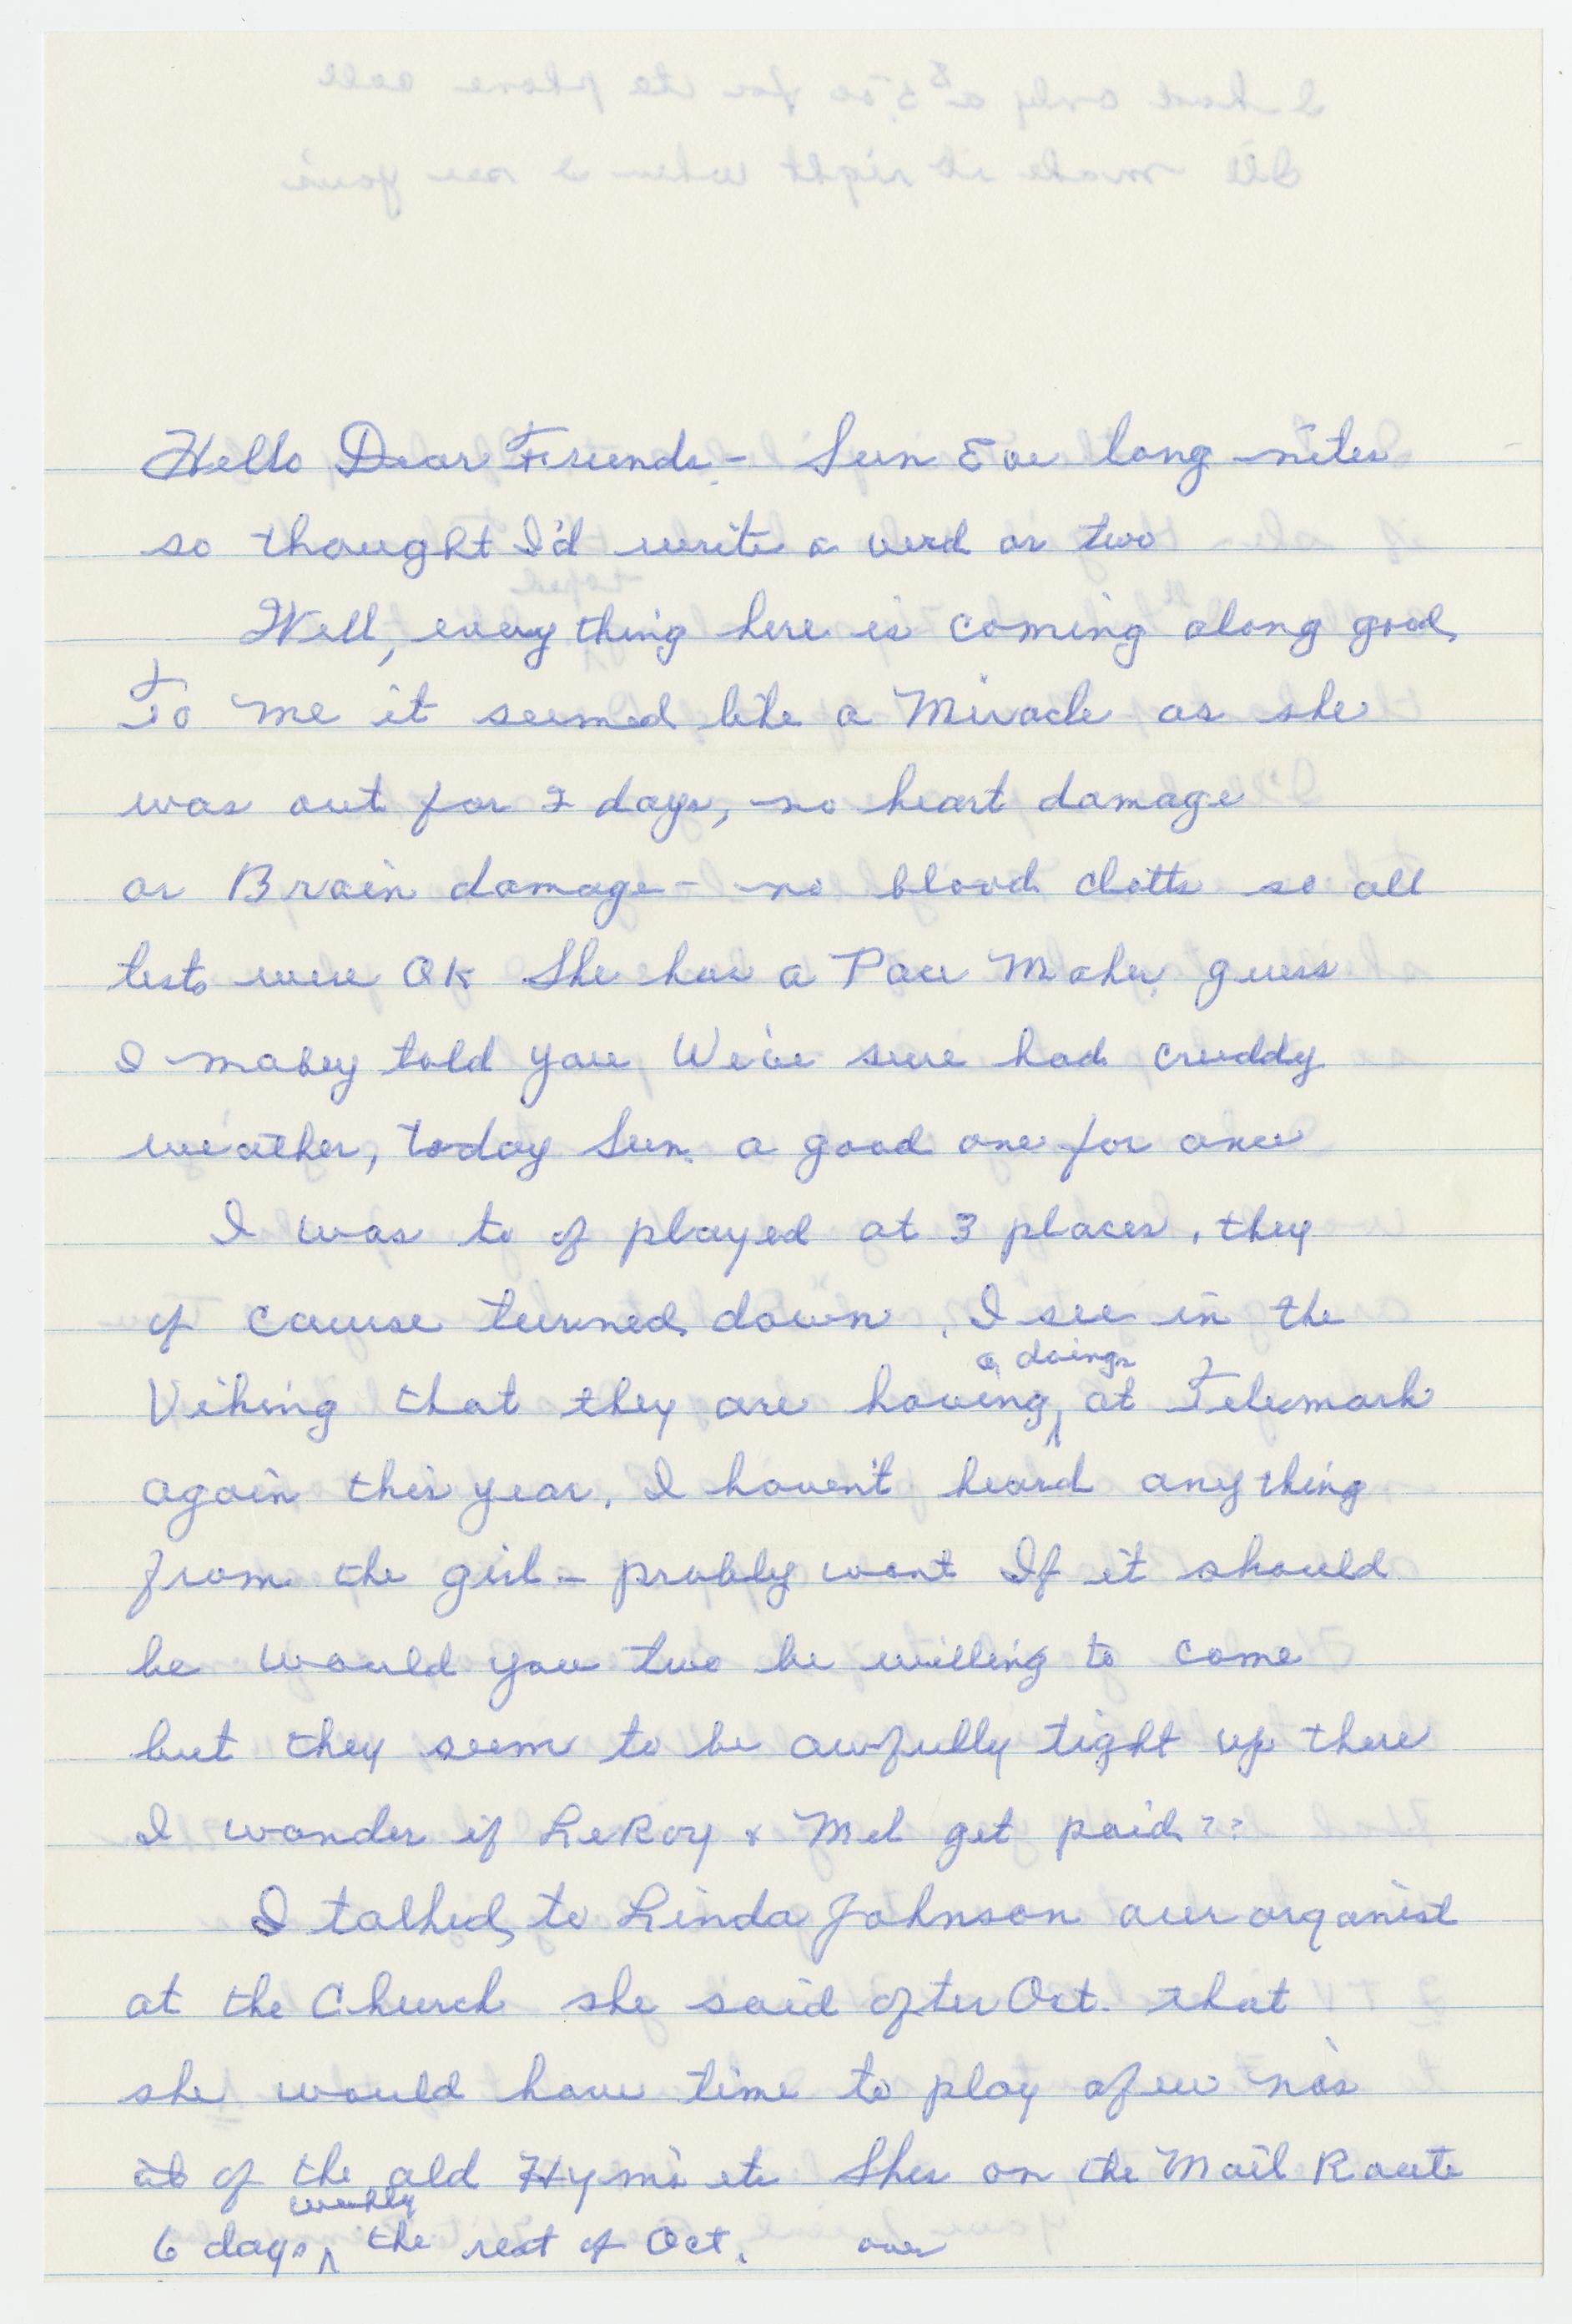 Hello Dear Friends - Sun Eve long nites
so thought I'd write a word or two
Well, every thing here is coming along good
To me it seemed like a Miracle as she
was out for 2 days, no heart damage
or Brain damage - no blood clotts so all
tests were OK She has a Pace Maker guess
I mabey told you We've sure had cruddy
weather, today Sun. a good one for once
I was to of played at 3 places, they
of course turned down. I see in the
a doings
Viking that they are having at Telemark
again this year. I haven't heard anything
from the girl - probly wont If it should
be would you two be willing to come
but they seem to be awfully tight up there
I wonder if LeRoy & Mel get paid??
I talked to Linda Johnson our organist
at the Church she said after Oct. that
she would have time to play afew no's
of the old Hymi's etc Shes on the Mail Route
weekly
6 days the rest of Oct. over